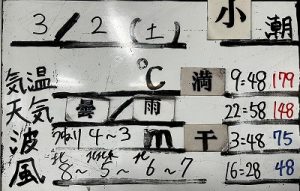 3/2(土) 小潮
気温 ℃ 満 9:48 179
天気 曇/雨 22:58 148
波 うねり4~3m 干 3:48 75
風 北8~北北東5~北6~7 16:28 48